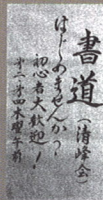 書道
(清峰会)
はじめませんか?
初心者大歓迎!
第二、第四木曜午前